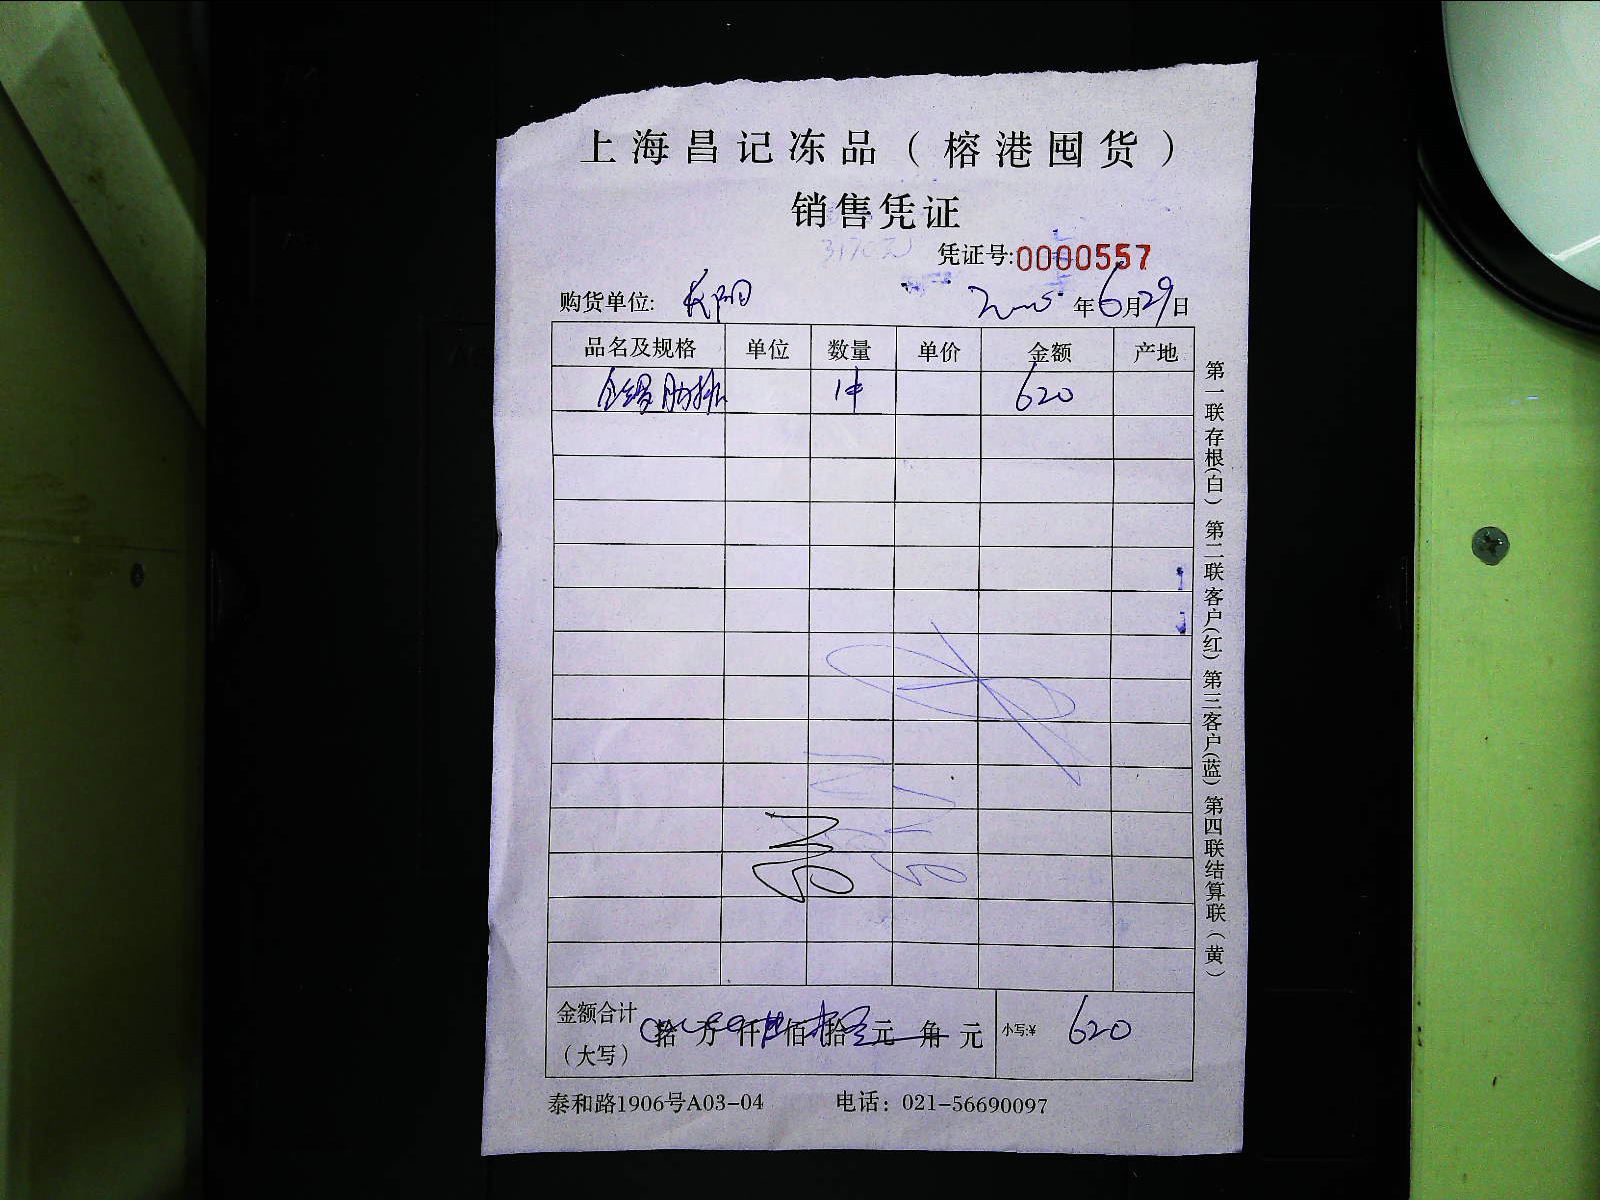 上海昌记冻品（榕港囤货）
销售凭证
3170元
凭证号:0000557
购货单位: 长阳 年6月29日
品名及规格 单位 数量 单价 金额 产地
肋排 1件 620
金额合计（大写） 拾 万 仟 佰 拾 元 角 元 小写:¥ 620
泰和路1906号A03-04 电话：021-56690097
第一联存根(白) 第二联客户(红) 第三客户(蓝) 第四联结算联(黄)